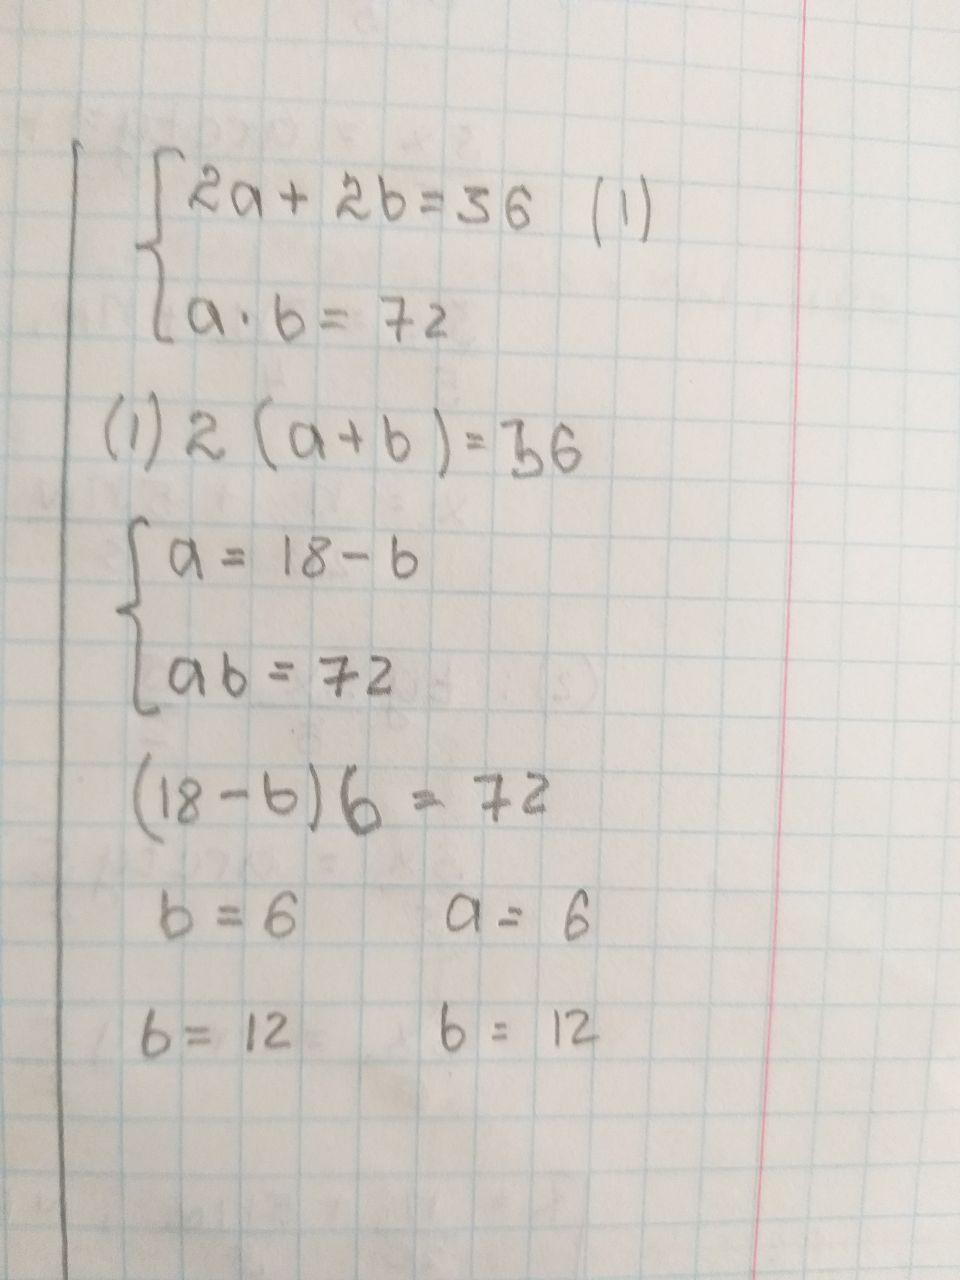 2a + 2b = 36 (1)
a · b = 72
(1) 2 (a + b) = 36
a = 18 - b
ab = 72
(18 - b) b = 72
b = 6 a = 6
b = 12 b = 12